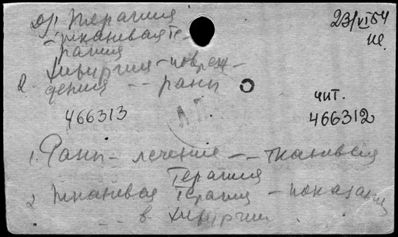 др. Терапия
- тканевая те-
рапия
23/VI 54
2. Хирургия - повреж-
дения -- раны
чит.
466313
466312
1. Раны - лечение -- тканевая
терапия
2. Тканевая терапия - показания
-- в хирургии